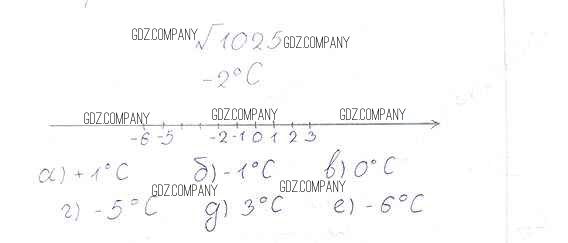 GDZ.COMPANY √1025 GDZ.COMPANY
-2°C
GDZ.COMPANY GDZ.COMPANY GDZ.COMPANY
-6 -5 -2 -1 0 1 2 3
а) +1°C б) -1°C в) 0°C
GDZ.COMPANY GDZ.COMPANY
г) -5°C д) 3°C е) -6°C